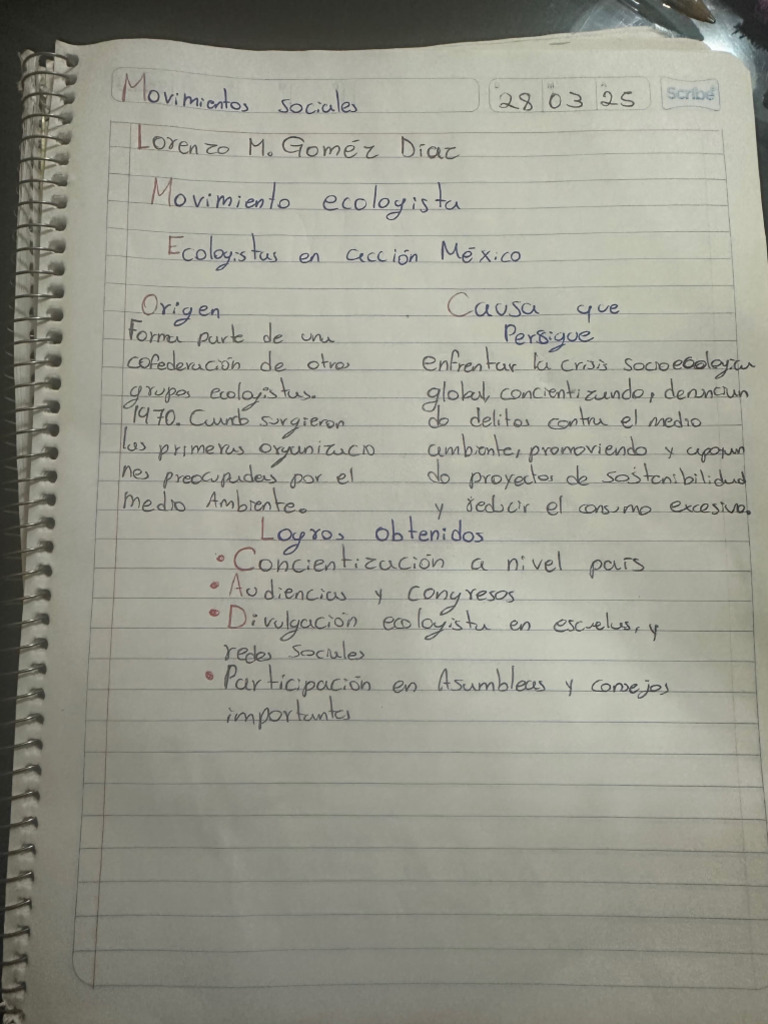 Movimientos sociales 28 03 25 Scribe
Lorenzo M. Goméz Díaz
Movimiento ecologista
Ecologistas en acción México
Origen
Forma parte de una
cofederación de otros
grupos ecologistas.
1970. Cuando surgieron
las primeras organizacio
nes preocupadas por el
medio Ambiente.
Causa que
Persigue
enfrentar la crisis socioecologica
global, concientizando, denuncian
do delitos contra el medio
ambiente, promoviendo y apoyan
do proyectos de sostenibilidad
y reducir el consumo excesivo.
Logros obtenidos
• Concientización a nivel país
• Audiencias y congresos
• Divulgación ecologista en escuelas, y
redes sociales
• Participación en Asambleas y consejos
importantes